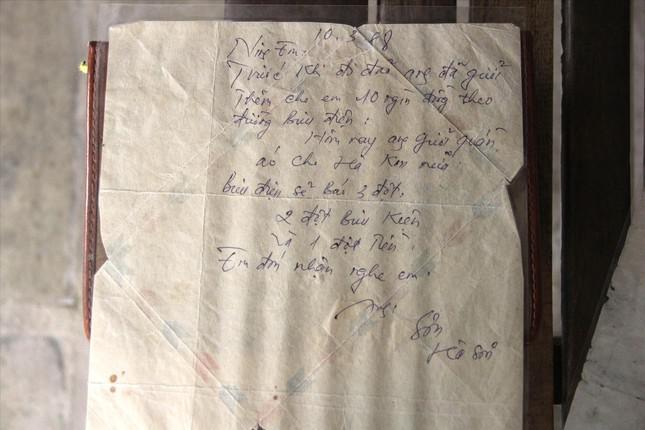 10.3.88
Ninh Em:
Trước khi đi đảo anh đã gửi
Thêm cho em 10 ngìn đồng theo
đường bưu điện:
Hôm nay anh gửi quần
áo cho Hà Kim nữa:
Bưu điện sẽ báo 3 đợt.
2 đợt bưu kiện
và 1 đợt Tiền.
Em đón nhận nghe em.
Anh
Sơn
Hồ Sơn